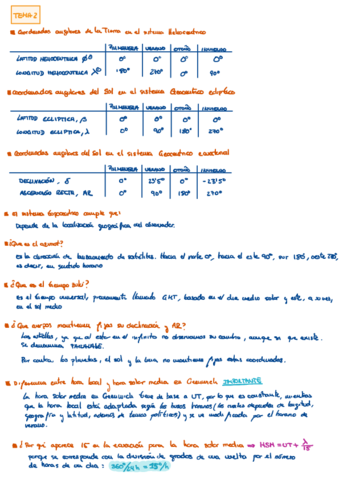 TEMA 2
Coordenadas angulares de la Tierra en el sistema Heliocéntrico
PRIMAVERA VERANO OTOÑO INVIERNO
LATITUD HELIOCÉNTRICA 0° 0° 0° 0°
LONGITUD HELIOCÉNTRICA 180° 270° 0° 90°
Coordenadas angulares del Sol en el sistema Geocéntrico eclíptico
PRIMAVERA VERANO OTOÑO INVIERNO
LATITUD ECLÍPTICA, β 0° 0° 0° 0°
LONGITUD ECLÍPTICA, λ 0° 90° 180° 270°
Coordenadas angulares del Sol en el sistema Geocéntrico ecuatorial
PRIMAVERA VERANO OTOÑO INVIERNO
DECLINACIÓN, δ 0° 23'5° 0° -23'5°
ASCENSIÓN RECTA, AR 0° 90° 180° 270°
El sistema topocéntrico cumple que:
Depende de la localización geográfica del observador.
¿Qué es el azimut?
es la dirección de de satélites. Hacia el norte 0°, hacia el este 90°, sur 180, oeste 270,
es decir, en sentido horario
¿Qué es el tiempo
Es el tiempo universal, previamente llamado GMT, basado en el día medio solar y este, a su vez,
en el sol medio
¿Qué cuerpos mantienen fijas su declinación y AR?
Las estrellas, ya que al estar en el infinito no observamos su cambio, aunque sí que existe.
Se denomina
Por contra los planetas, el sol y la luna no mantienen fijas estas coordenadas.
Diferencia entre hora local y hora solar media en Greenwich IMPORTANTE
La hora solar media en Greenwich tiene de base a UT, por lo que es constante, mientras
que la hora local está adaptada según los husos horarios (los cuales dependen de longitud,
y latitud, además de husos políticos) y se ve modificada por el horario de
verano.
¿Por qué aparece 15 en la ecuación para la hora solar media ⇒ HSM = UT + λ/15
porque se corresponde con la división de grados de una vuelta por el número
de horas de un día: 360°/24h = 15°/h